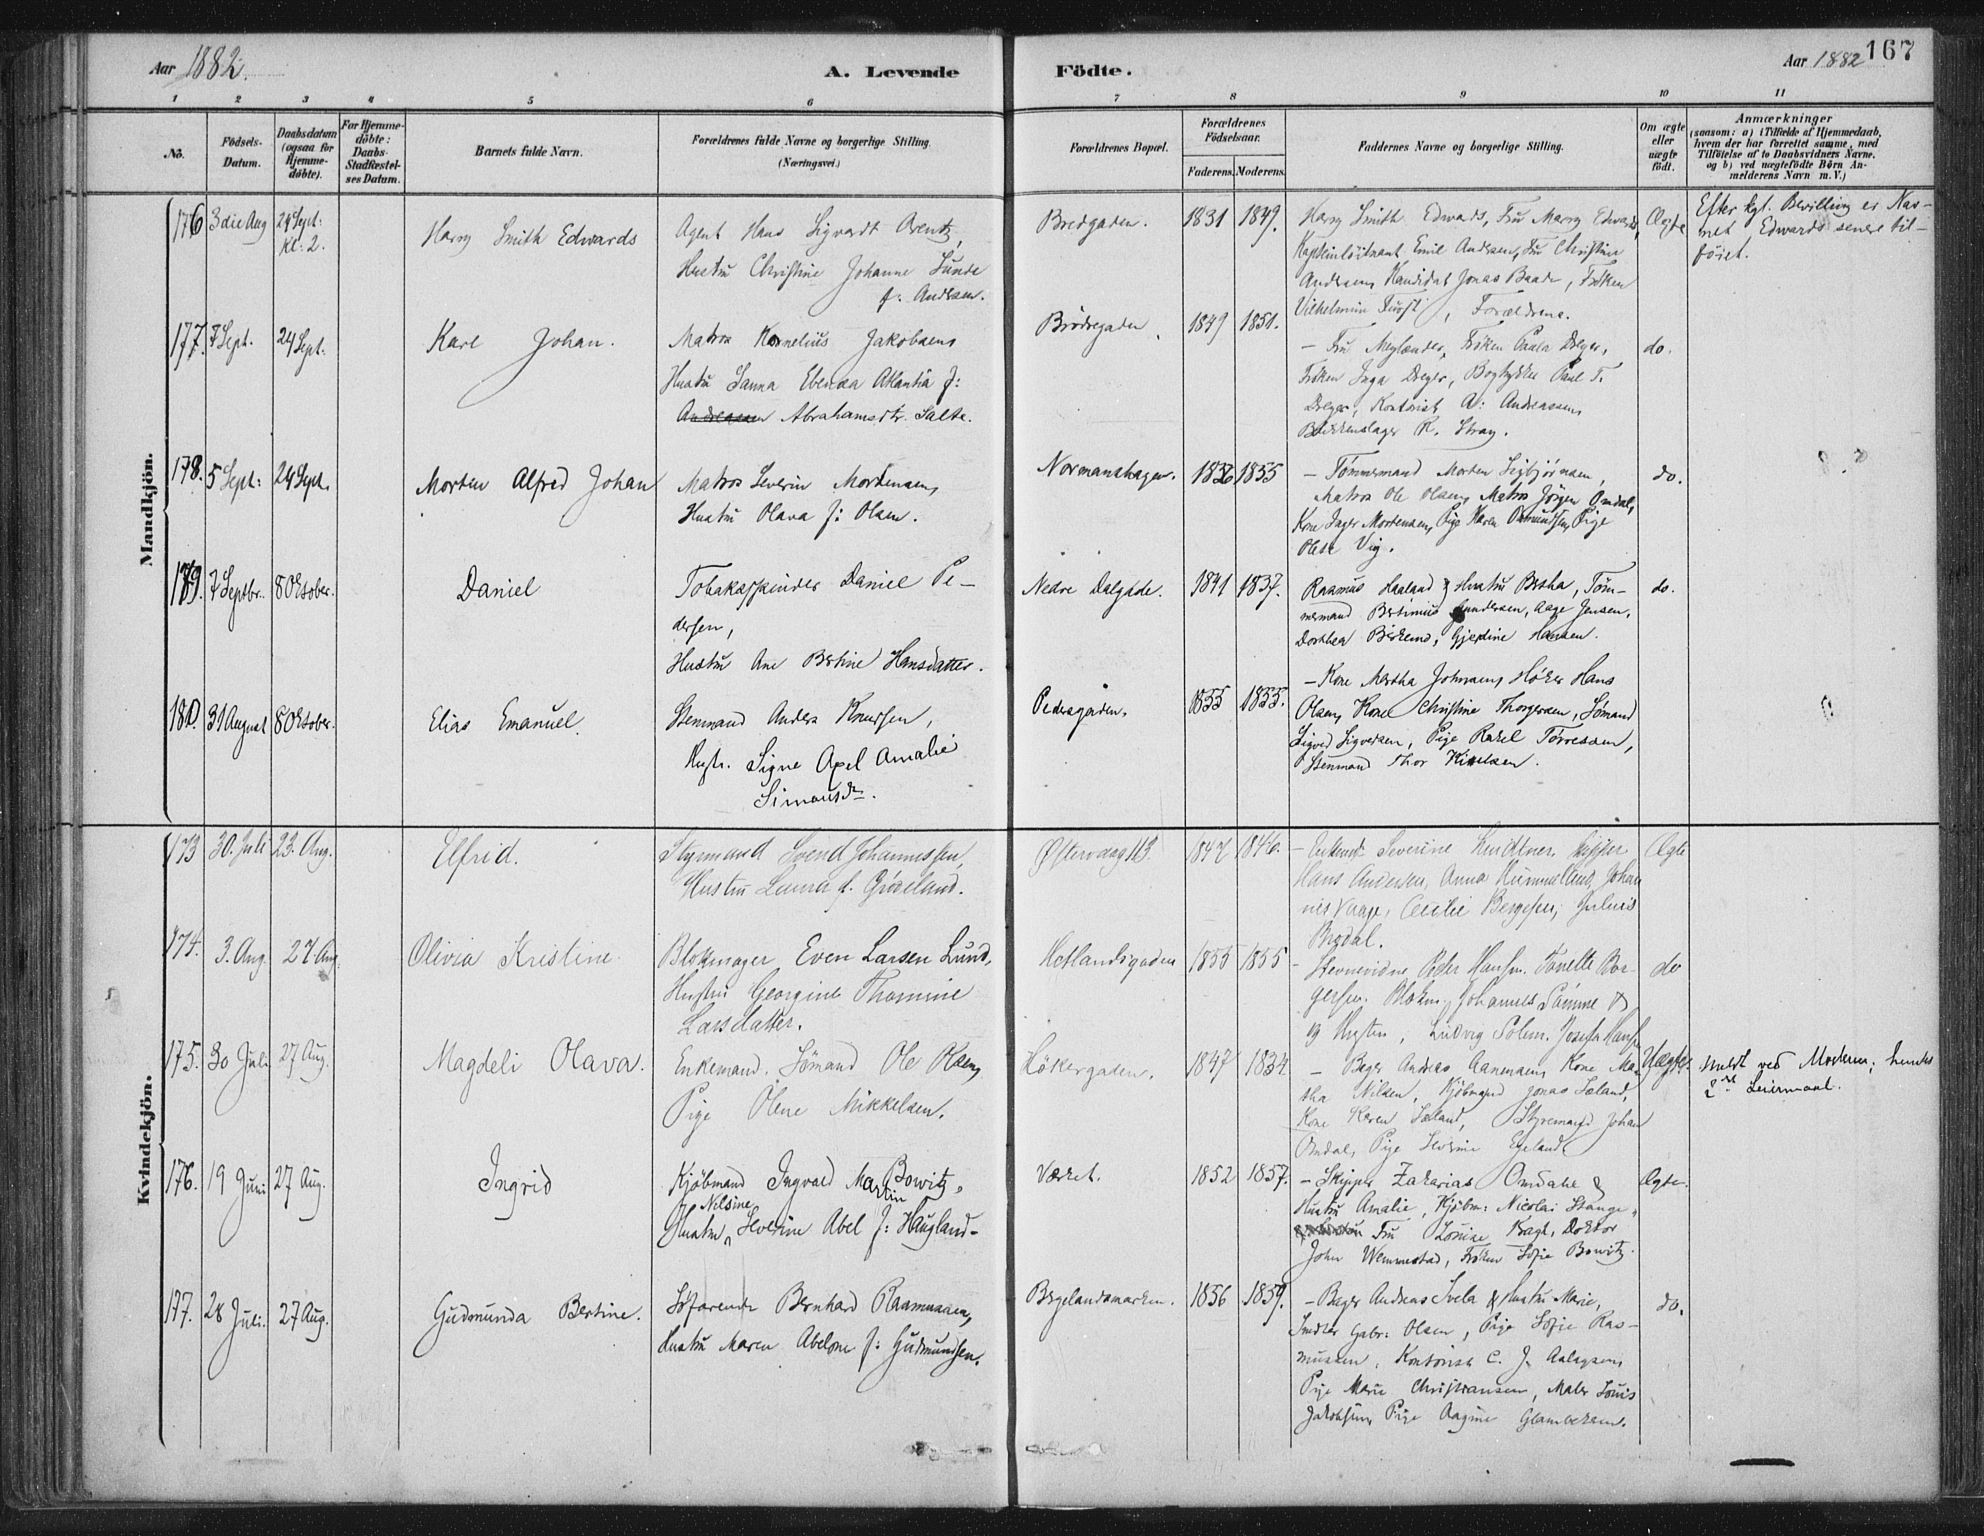 Aar 1882.
A. Levende
Födte.
Aar 1882
167
1 2 3 4 5 6 7 8 9 10 11
No.
Födsels-
Datum.
Daabsdatum
(ogsaa for
Hjemme-
döbte).
For Hjemme-
döbte:
Daabs-
Stadfæstel-
ses Datum.
Barnets fulde Navn.
Forældrenes fulde Navne og borgerlige Stilling.
(Næringsvei.)
Forældrenes Bopæl.
Forældrenes
Födselsaar.
Faderens. Moderens.
Faddernes Navne og borgerlige Stilling.
Om ægte
eller
uægte
födt.
Anmærkninger
(saasom: a) i Tilfælde af Hjemmedaab,
hvem der har forrettet samme, med
Tilföielse af to Daabsvidners Navne,
og b) ved uægtefödte Börn An-
melderens Navn m. V.)
Mandkjön.
176 3die Aug 24 Sept: kl: 2.
Harry Smith Edwards
Agent Hans Sigvardt Arentz,
Hustru Christine Johanne Lunde
f. Andersen.
Bredgaden. 1831 1849.
Harry Smith Edwards, Fru Marry Edwards,
Kapteinløitnant Emil Andersen, Fru Christine
Andersen, Kandidat Jonas Baade, Frøken
Vilhelmine , Forældrene.
Ægte
Efter kgl. Bevilling er Nav-
net Edwards senere til-
føiet.
177. 7 Sept. 24 Sept.
Karl Johan.
Matros Kornelius Jakobsen,
Hustru Sanna Ebenea Atlantia f:
Andreasen Abrahamsdtr. Salte.
Brødregaden 1849 1851.
– Fru Meglænder, Frøken Paula Dreyer,
Frøken Inga Dreyer, Bogtrykker Paul T.
Dreyer, Kontorist A: Andreassen,
Blikkenslager R. Stray.
do.
178. 5 Sept: 24 Sept.
Morten Alfred Johan
Matros Severin Mortensen,
Hustru Olava f: Olsen.
Normanshagen. 1856 1855
– Tømmermand Morten Sigbjørnsen,
Matros Ole Olsen, Matros Jørgen Omdal,
Kone Inger Mortensen, Pige Karen Osmundsen, Pige
Olene Vig.
do.
179. 7 Septbr. 8 Oktober.
Daniel
Tobakspinder Daniel Pe-
dersen,
Hustru Ane Bertine Hansdatter.
Nedre Dalgade. 1841 1837.
Rasmus Haaland & Hustru Bertha, Tøm-
mermand Bertinius Gundersen, Aage Jensen,
Dorthea Birkemo, Gjertine Hansen.
do.
180 31 August 8 Oktober.
Elias Emanuel.
Stenmand Anders Knudsen,
Hustr. Signe Axel Amalie
Simonsdr.
Pedersgaden. 1855 1855.
– Kone Martha Johnsen, Høker Hans
Olsen, Kone Christine Thorgersen, Sømand
Sigved Sigvedsen, Pige Rakel Tørressen,
Stenmand Thor Kittelsen.
Kvindekjön.
173 30. Juli 23. Aug.
Elfrid.
Styrmand Svend Johannessen,
Hustru Laura f. Grøseland.
Østervåg 113. 1847 1846.
– Enkemd: Severine Lindtner, Skipper
Hans Andersen, Anna Rummelhoff, Johan
nes Vaage, Cecilie Bergesen, Julius
Bredal.
Ægte
174. 3. Aug. 27 Aug.
Olivia Kristine.
Blokmager Even Larsen Lund,
Hustru Georgine Thomine
Larsdatter.
Hetlandsgaden 1855 1855
– Stevnevidne Peder Hansen. Tonette Bor-
gersen. Blokm. Johannes Sømme &
og Hustru, Ludvig Solem. Josefa Hansen
do
175. 30 Juli 27 Aug.
Magdeli Olava.
Enkemand. Sømand Ole Raen,
Pige Olene Mikkelsen.
Høkergaden. 1847 1834.
– Bager Andreas Aanensen, Kone Mar
tha Nilsen, Kjøbmand Jonas Sæland,
Kone Karen Sæland, Styremand Johan
Omdal, Pige Severine Egeland
Uægte.
meldt ved Moderen; hendes
2det Leiermaal.
176. 19 Juni 27 Aug.
Ingrid
Kjøbmand Ingvald Martin Bowitz,
Hustru Nilsine Severine Abel f: Haugland–
Værket. 1852 1857.
– Skipper Zakarias Omdahl &
Hustru Amalie, Kjøbm: Nicolai Stange,
Fru Louise Kragt, Doktor
John Wennestad, Frøken Sofie Bowitz.
Ægte.
177. 28 Juli. 27 Aug.
Gudmunda Bertine.
Søfarende Bernhard Rasmussen,
Hustru Maren Abelone f: Gudmundsen.
Bergelandsmarken. 1856 1859.
– Bager Andreas Svela & Hustru Marie,
Snedker Gabr: Olsen, Pige Sofie Ras-
mussen, Kontorist C. J. Aslagsen,
Pige Marie Christiansen, Maler Louis
Jakobsen, Pige Aagine Glambeksen.
do.